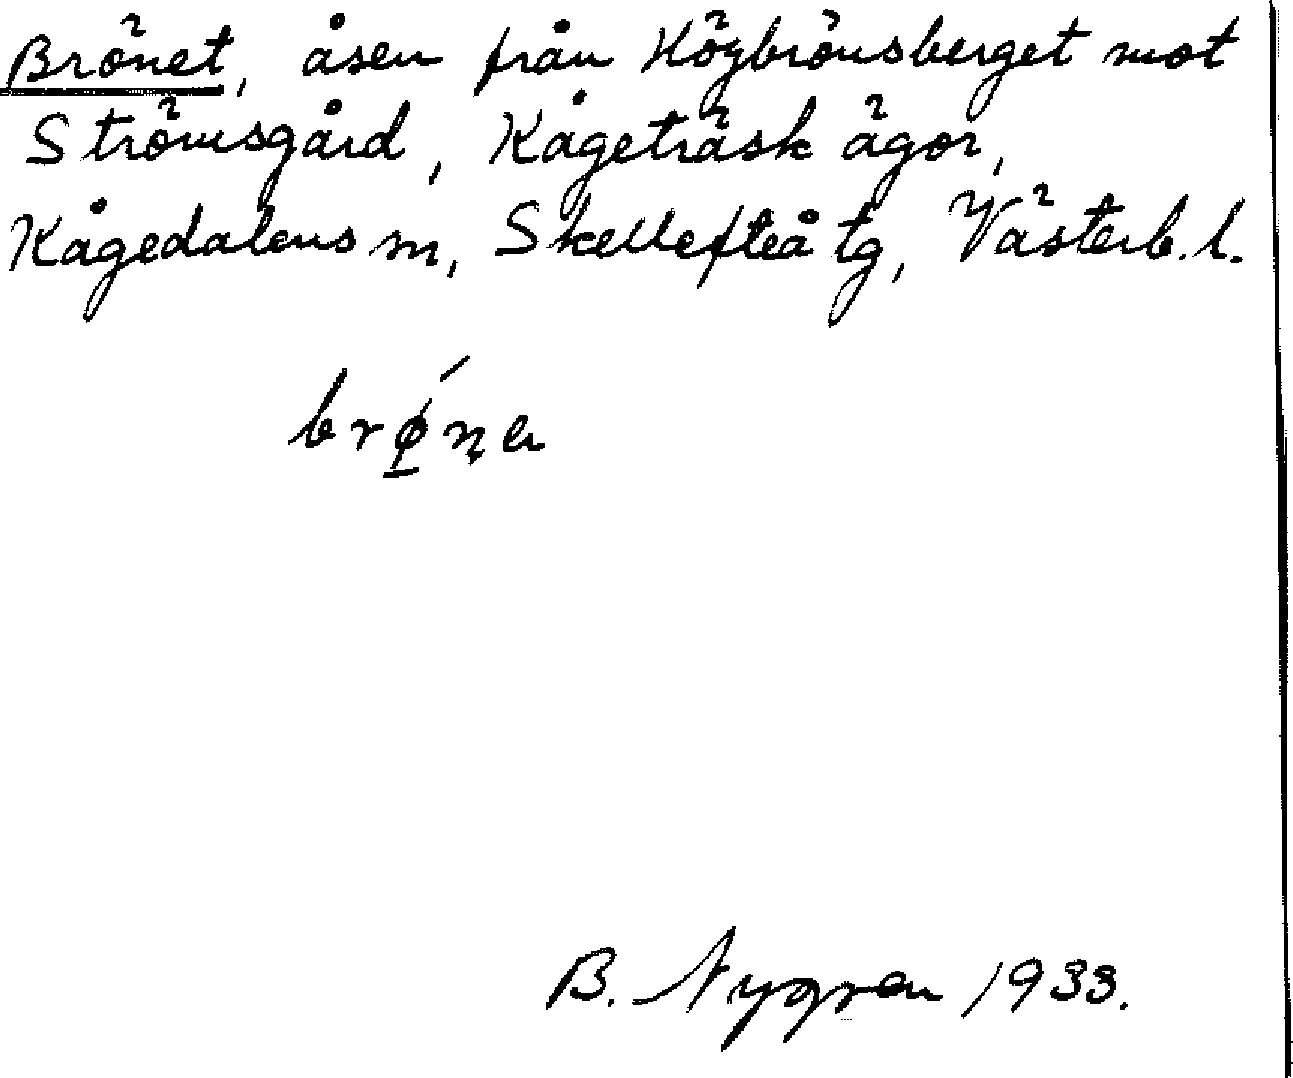 Brönet, åsen från Högbrönsberget mot
Strömsgård, Kågeträsk ägor,
Kågedalens m, Skellefteå tg, Västerb. l.
brǿ̱ṇa
B. Nygren 1933.